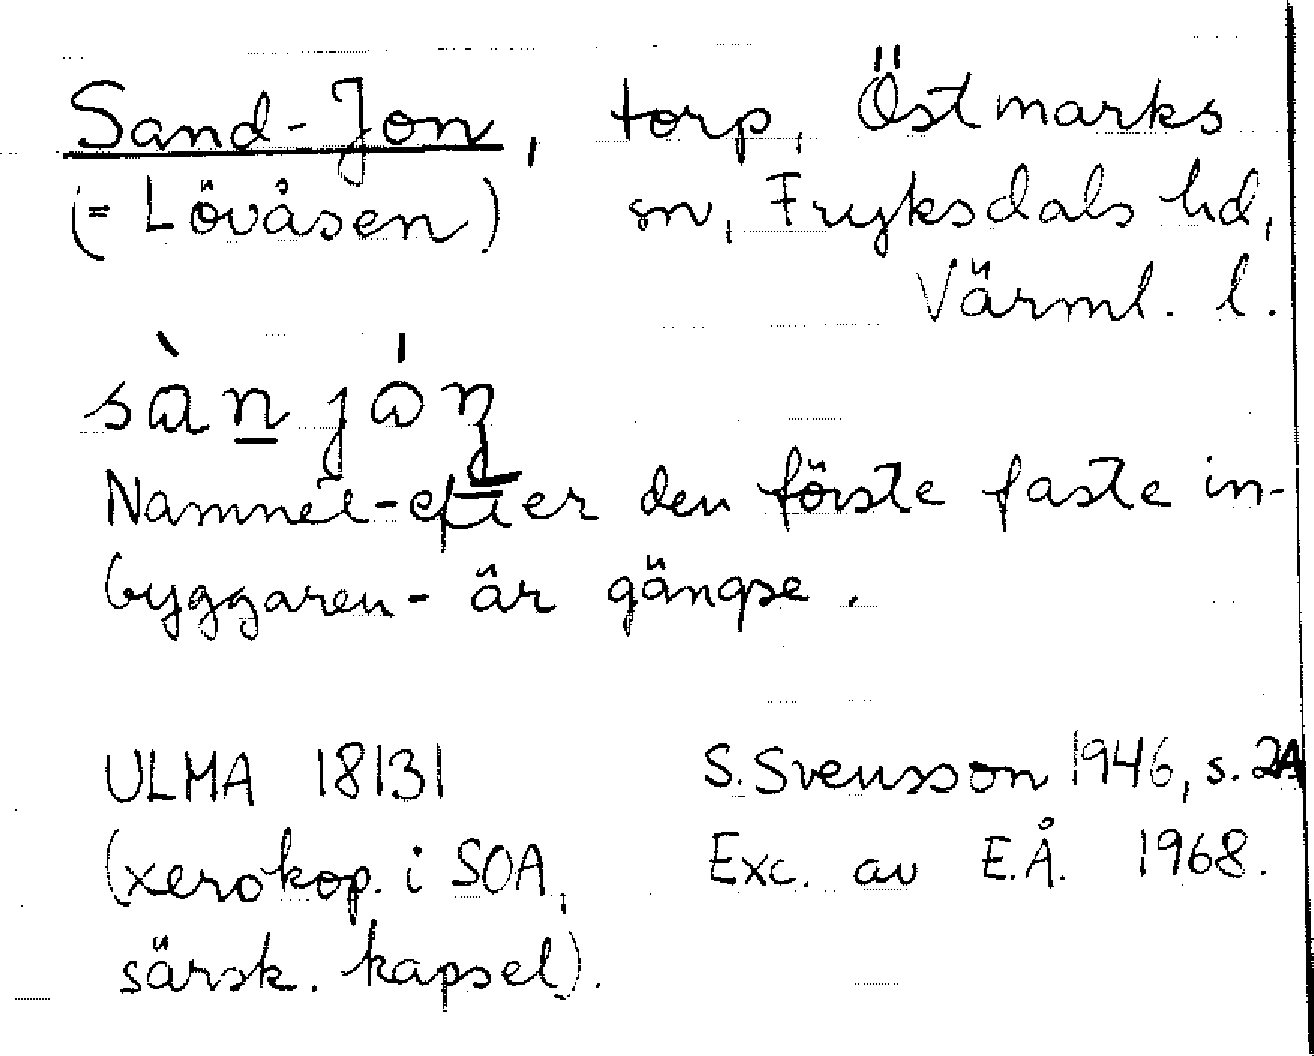 Sand-Jon, torp, Östmarks
(= Lövåsen) sn, Fryksdals hd,
Värml. l.
sàn jón
Namnet-efter den förste faste in-
byggaren- är gängse.
ULMA 18131 S. Svensson 1946, s. 24
(xerokop. i SOA, Exc. av E.Å. 1968.
särsk. kapsel).